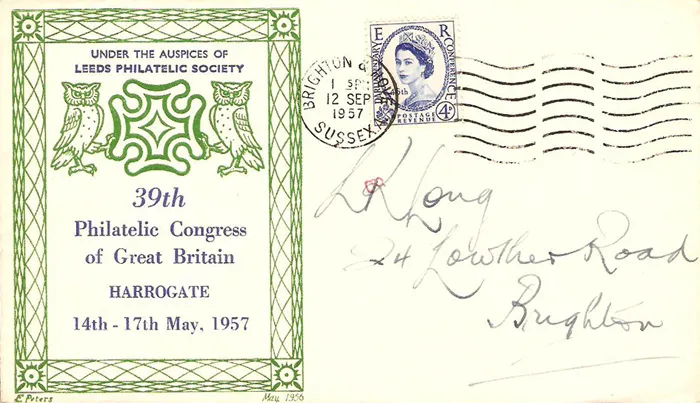 UNDER THE AUSPICES OF
LEEDS PHILATELIC SOCIETY
39th
Philatelic Congress
of Great Britain
HARROGATE
14th - 17th May, 1957
E Peters
May 1956
BRIGHTON & HOVE
1 
12 SEP
1957
SUSSEX
E R
46th PARLIAMENTARY CONFERENCE
POSTAGE
REVENUE
4D
Long
24 Lowther Road
Brighton